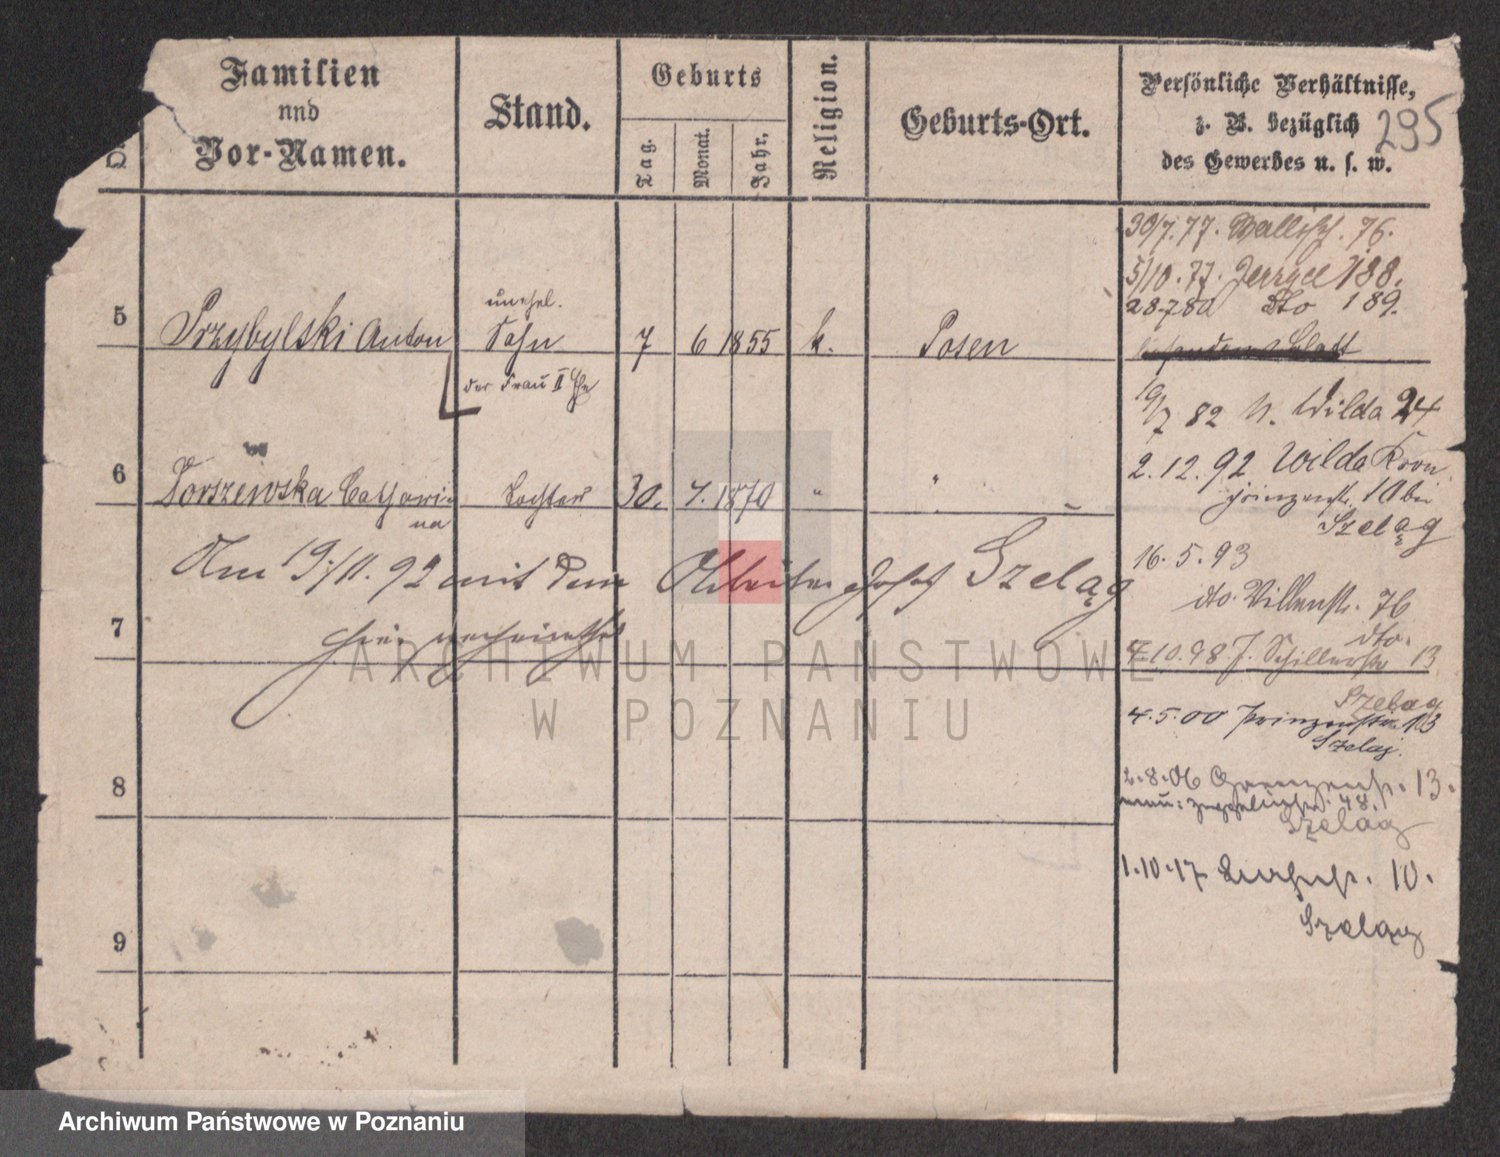 Familien
und
Vor-Namen.
Stand.
Geburts
Tag.
Monat.
Jahr.
Religion.
Geburts-Ort.
Persönliche Verhältnisse,
z. B. bezüglich
des Gewerbes u. s. w.
295
30/7.77. Wallisch. 76.
5/10.77. Jerzyce 188.
28.7.80 dto 189.
5 Przybylski Anton
unehel.
Sohn
der Frau II Ehe
7 6 1855 k. Posen
19/7 82 N. Wilda 24
6 Torszewska Cathari-
na
Tochter 30. 4. 1870 " "
2.12.92 Wilda Kron
prinzenstr. 10 bei
Szeląg
Am 19./11.92 mit dem Arbeiter Josef Szeląg
hier verheirathet
7
16.5.93
dto. Villenstr. 76
dto.
10.98 Schillerstr 13
Szelag
4.5.00 Prinzenstr. 13
Szelag.
8
2.8.06 13.
48.
Szelag
1.10.17 10.
Szelag
9
ARCHIWUM PAŃSTWOWE
W POZNANIU
Archiwum Państwowe w Poznaniu